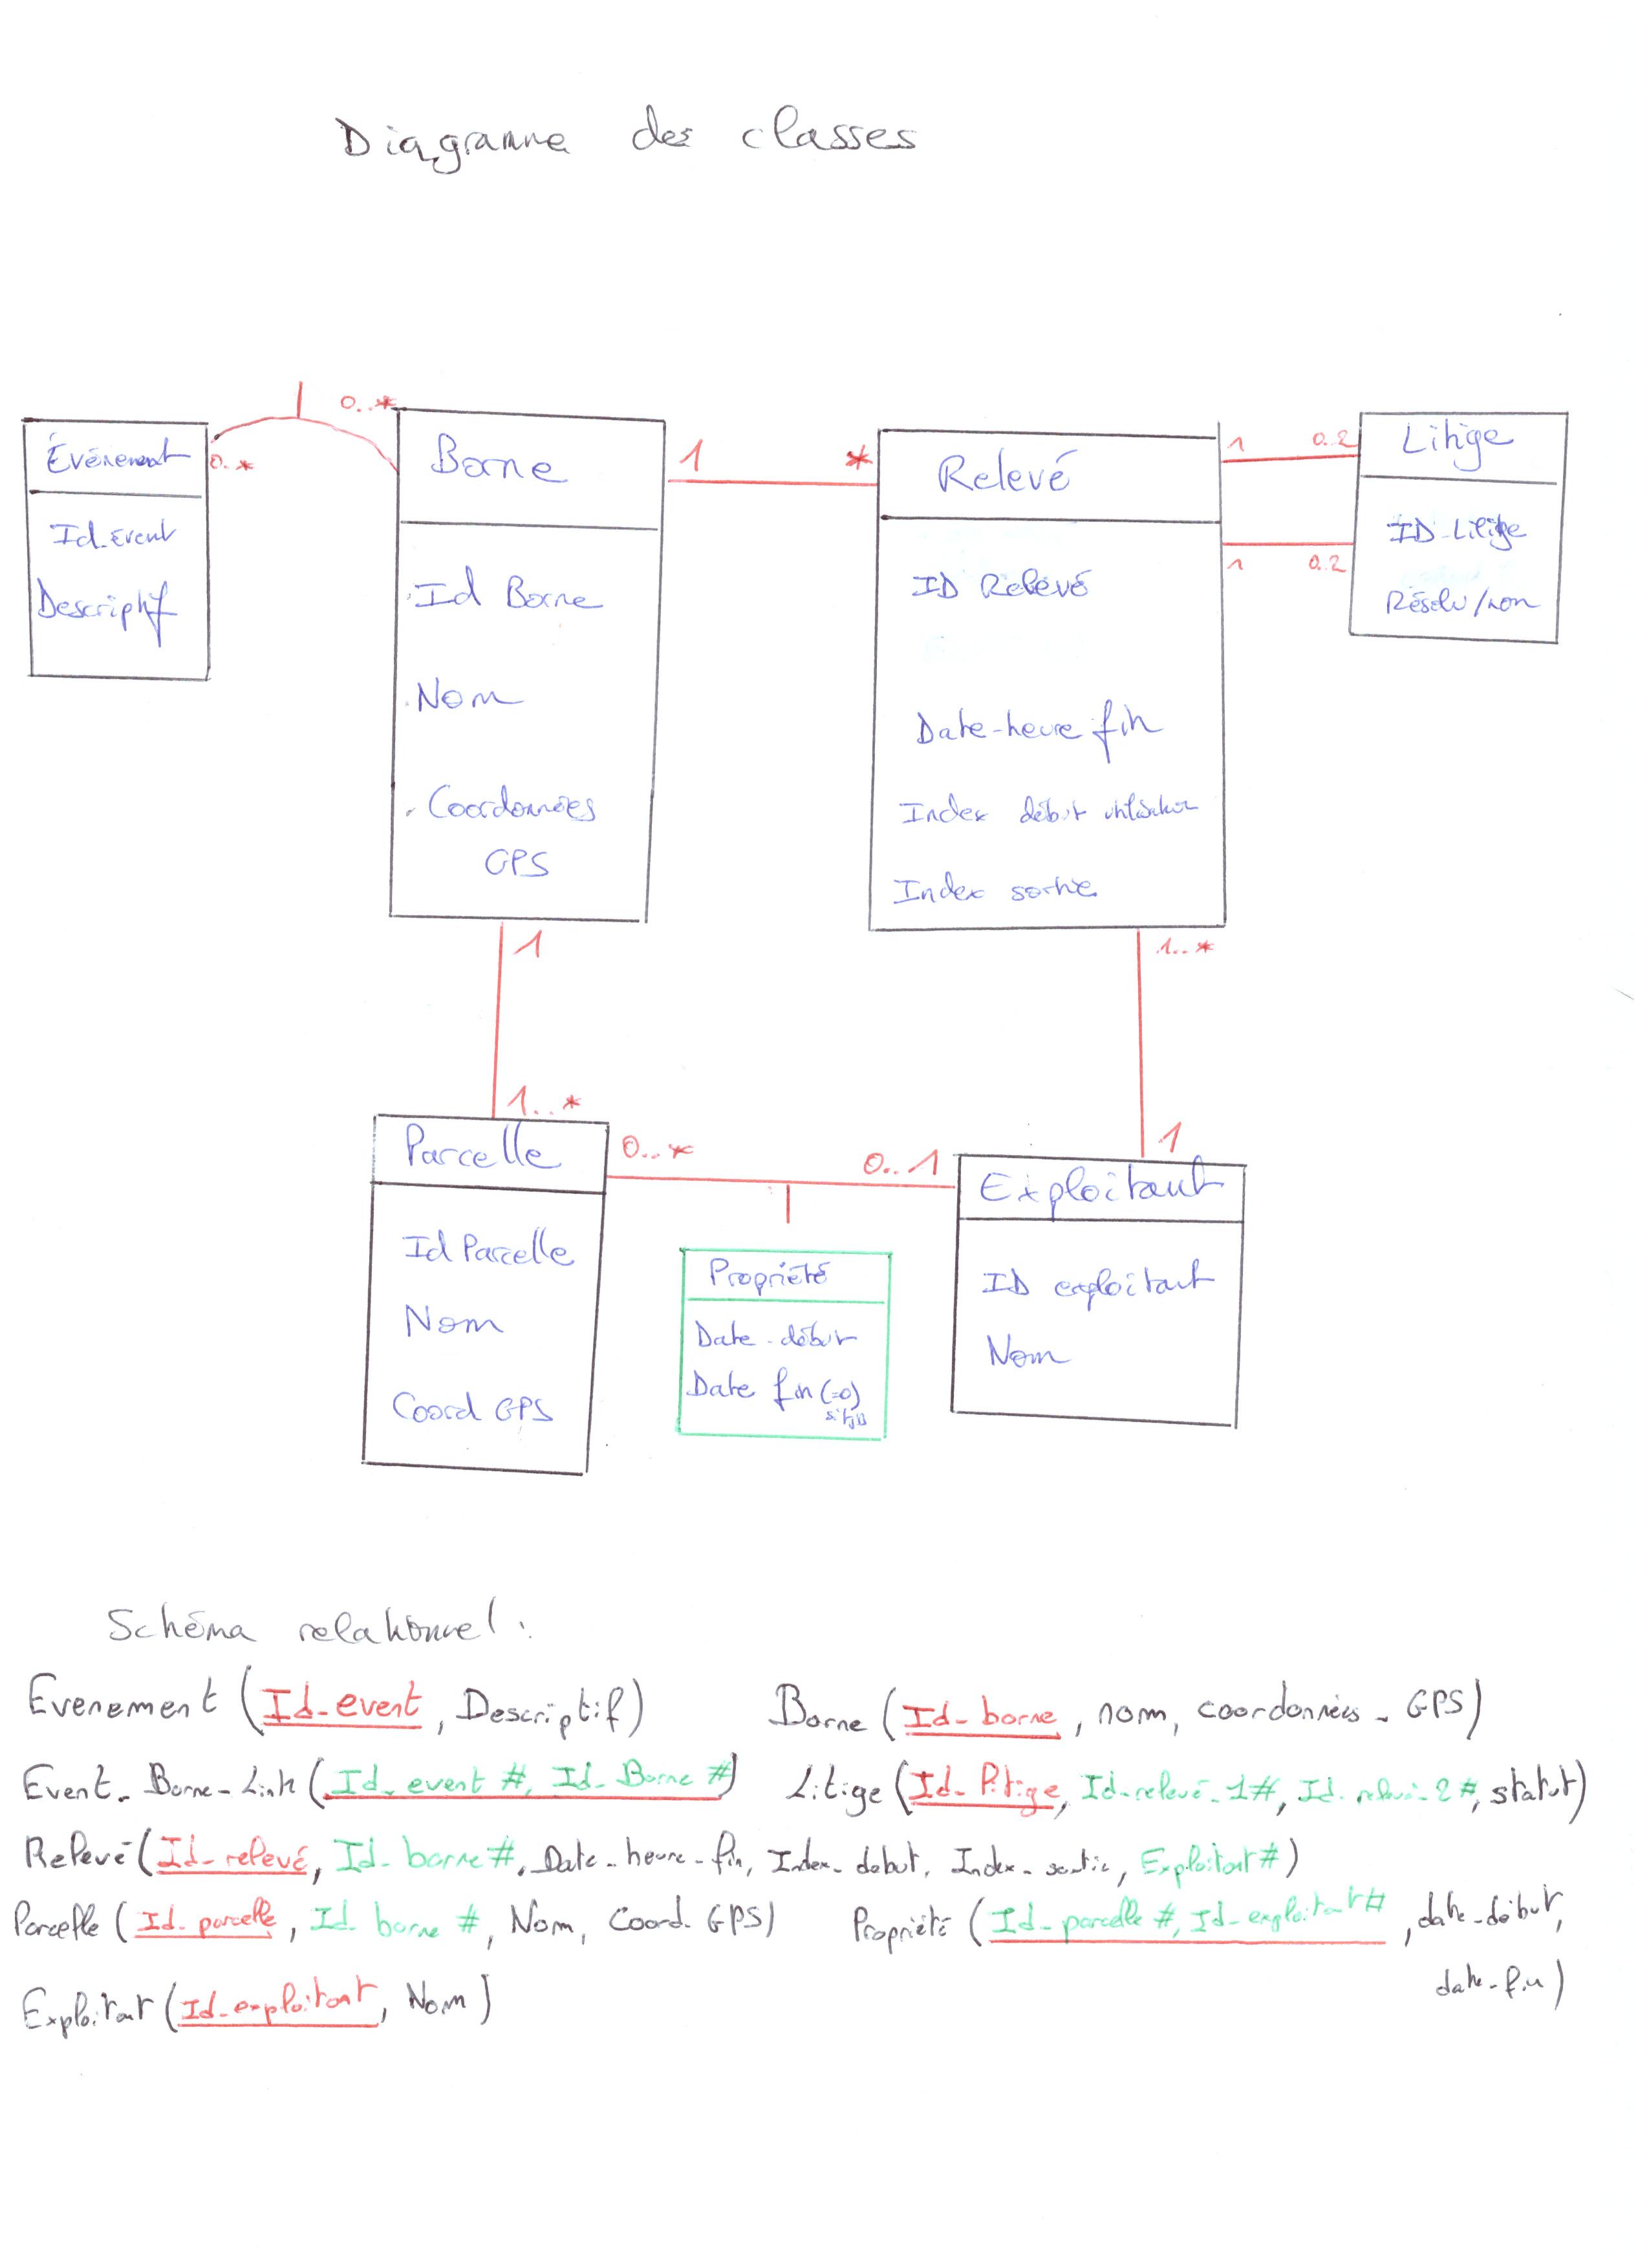 Diagramme des classes
0..*
Événement
0..*
Id_event
Descriptif
Borne
Id Borne
Nom
Coordonnées
GPS
1
*
Relevé
ID Relevé
Date-heure fin
Index début utilisation
Index sortie
1
0..2
1
0..2
Litige
ID-Litige
Résolu/non
1
1..*
1..*
1
Parcelle
Id Parcelle
Nom
Coord GPS
0..*
0..1
Propriété
Date-début
Date fin (=0)
Exploitant
ID exploitant
Nom
Schéma relationnel :
Evenement (Id_event, Descriptif)
Borne (Id_borne, nom, coordonnées_GPS)
Event_Borne_Link (Id_event #, Id_Borne #)
Litige (Id_litige, Id-relevé-1#, Id-relevé-2#, statut)
Relevé (Id_relevé, Id_borne #, Date_heure_fin, Index_début, Index_sortie, Exploitant #)
Parcelle (Id_parcelle, Id_borne #, Nom, Coord. GPS)
Propriété (Id_parcelle #, Id_exploitant #, date_début,
date_fin)
Exploitant (Id_exploitant, Nom)